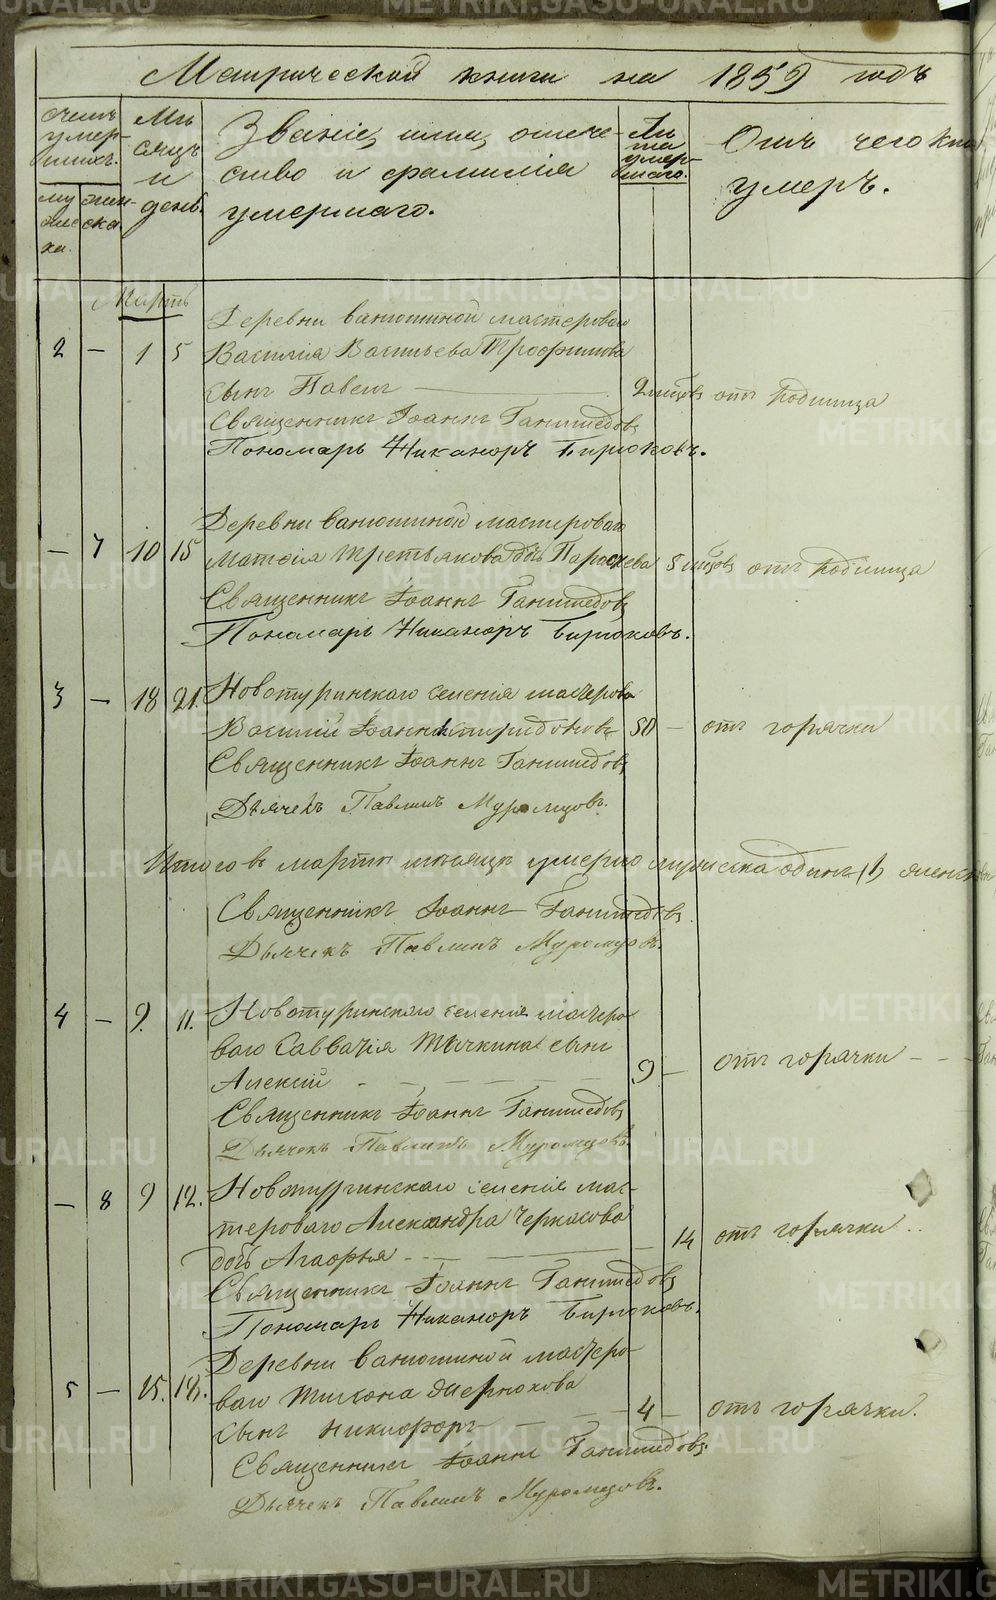 Метрической книги на 1859 годъ
счетъ умершихъ.
мужеска
женска
Мѣсяцъ и день.
Званіе, имя, отечество и фамилія умершаго.
Лѣта умершаго.
Отъ чего кто умеръ.
Мартъ
2 — 1 5 Деревни Ванюшиной мастероваго
Василія Васильева Трофимова
сынъ Павелъ 2 мѣсцовъ отъ Родимца
Священникъ Іоаннъ
Пономарь Никаноръ Бирюковъ.
— 7 10 15 Деревни Ванюшиной мастероваго
Матѳія Третьякова дочь Параскева 5 мѣсцовъ отъ Родимца
Священникъ Іоаннъ
Пономарь Никаноръ Бирюковъ.
3 — 18 21. Новотуринскаго селенія мастеровой
Василій Іоаннъ Спиридоновъ 50 — отъ горячки
Священникъ Іоаннъ
Дьячекъ Павлинъ Муромцовъ.
Итого въ мартѣ мѣсяцѣ умерло мужеска одинъ (1) женска
Священникъ Іоаннъ
Дьячекъ Павлинъ Муромцовъ.
4 — 9. 11. Новотуринскаго селенія мастеро-
ваго Савватія Тычкина сынъ
Алексій 9 — отъ горячки — —
Священникъ Іоаннъ
Дьячекъ Павлинъ Муромцовъ
— 8 9 12. Новотуринскаго селенія мас-
тероваго Александра Черкасова
дочь Агафья — 14 отъ горячки
Священникъ Іоаннъ
Пономарь Никаноръ Бирюковъ.
5 — 15. 18. Деревни Ванюшиной мастеро-
ваго Тихона
сынъ Никифоръ 4 — отъ горячки.
Священникъ Іоаннъ
Дьячекъ Павлинъ Муромцовъ.
METRIKI.GASO-URAL.RU